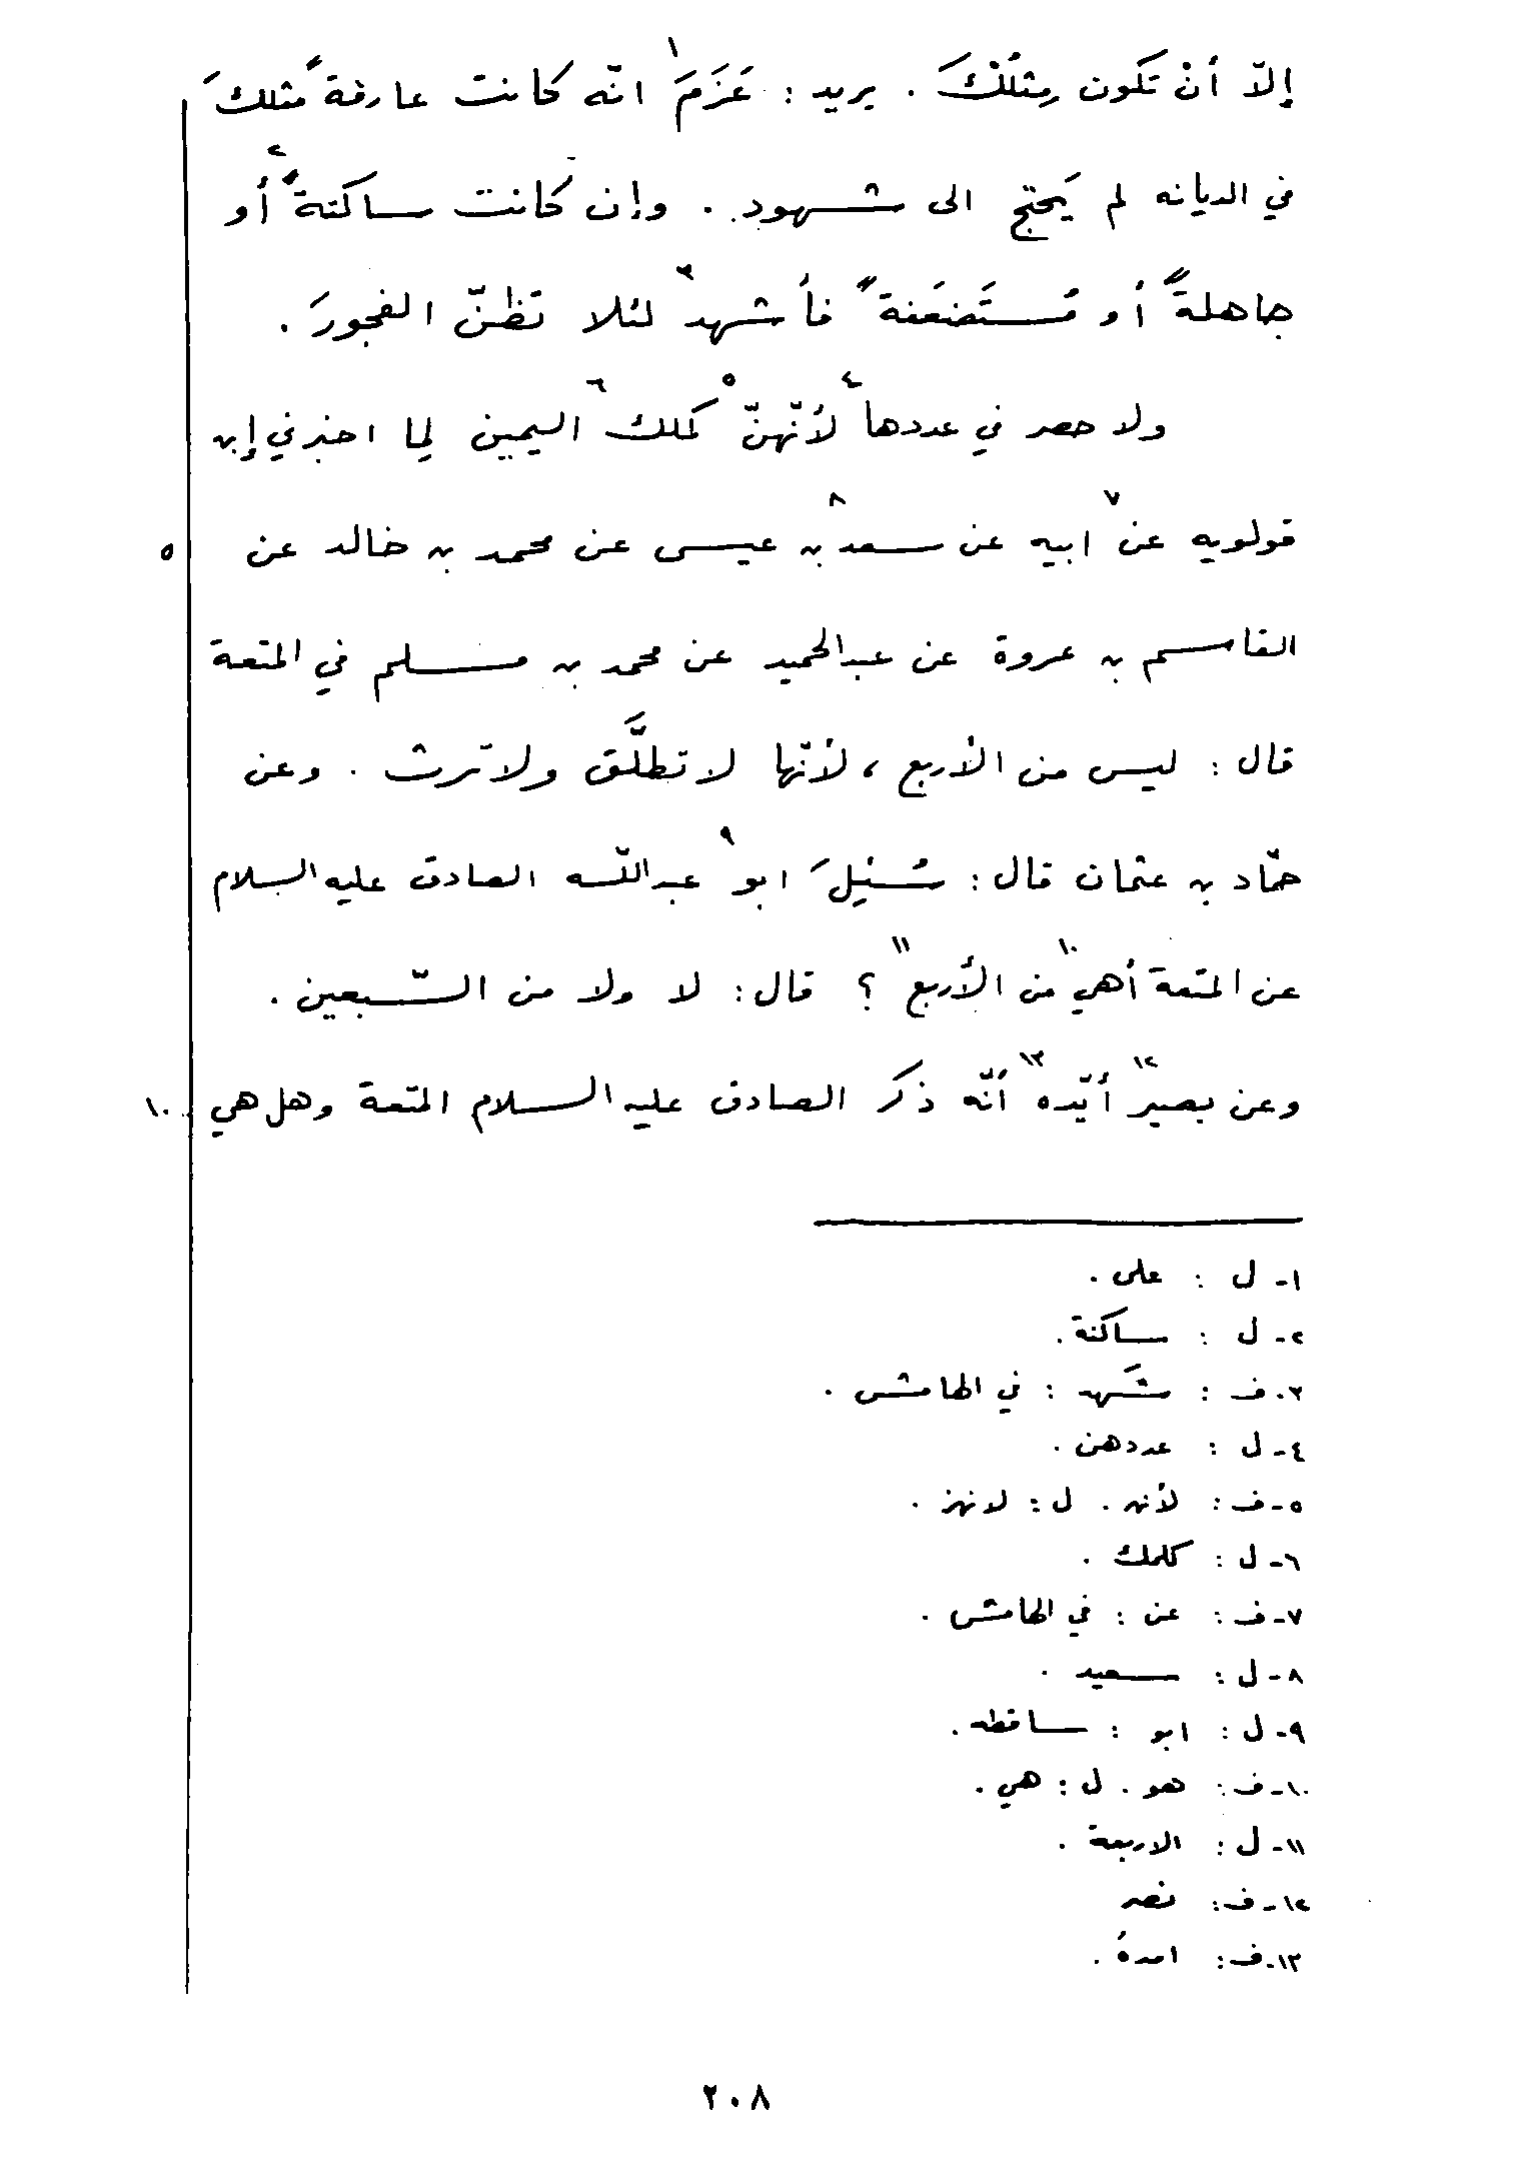 إلّا أنْ تَكون مِثلُكَ . يريد : عَزَمَ١ انّه كانت عارفةً مثلكَ
في الديانه لم يَحتج الى شهود . وإن كانت ساكتةً٢ أو
جاهلةً أو مُستَضعَفة ً فأشهد٣ لئلا تظنّ الفجورَ .
ولا حصر في عددها٤ لأنّهنّ٥ كملك٦ اليمين لِما اخبرني إبن
قولويه عن٧ ابيه عن سعد٨ بن عيسى عن محمد بن خالد عن
٥
القاسم بن عروة عن عبدالحميد عن محمد بن مسلم في المتعة
قال : ليس من الأربع ، لأنّها لا تطلَّق ولا ترث . وعن
حمّاد بن عثمان قال : سُئِلَ ابو٩ عبدالله الصادق عليه السلام
عن المتعة أهي١٠ من الأربع١١ ؟ قال : لا ولا من السّبعين .
وعن بصير١٢ أيّده١٣ أنّه ذكر الصادق عليه السلام المتعة وهل هي
١٠
١- ل : على .
٢- ل : ساكنة .
٣- ف : شَهد : في الهامش .
٤- ل : عددهن .
٥- ف : لأنه . ل : لانهز .
٦- ل : كلملك .
٧- ف : عن : في الهامش .
٨- ل : سعيد .
٩- ل : ابو : ساقطه .
١٠- ف : هو . ل : هي .
١١- ل : الاربعة .
١٢- ف : نصر
١٣- ف : امدهُ .
٢٠٨